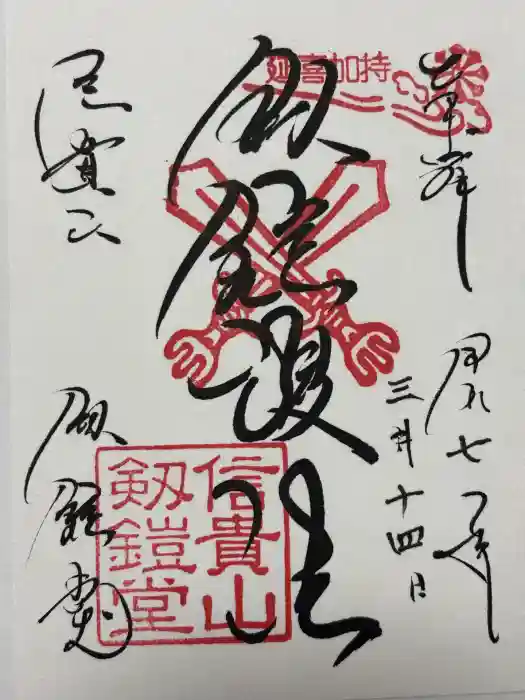 延喜加持
奉拝
令和七年
三月十四日
剱鎧護法
信貴山
剱鎧堂
信貴山
剱鎧堂